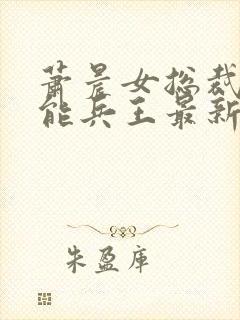 萧晨女总裁
能兵王最新
朱盈库